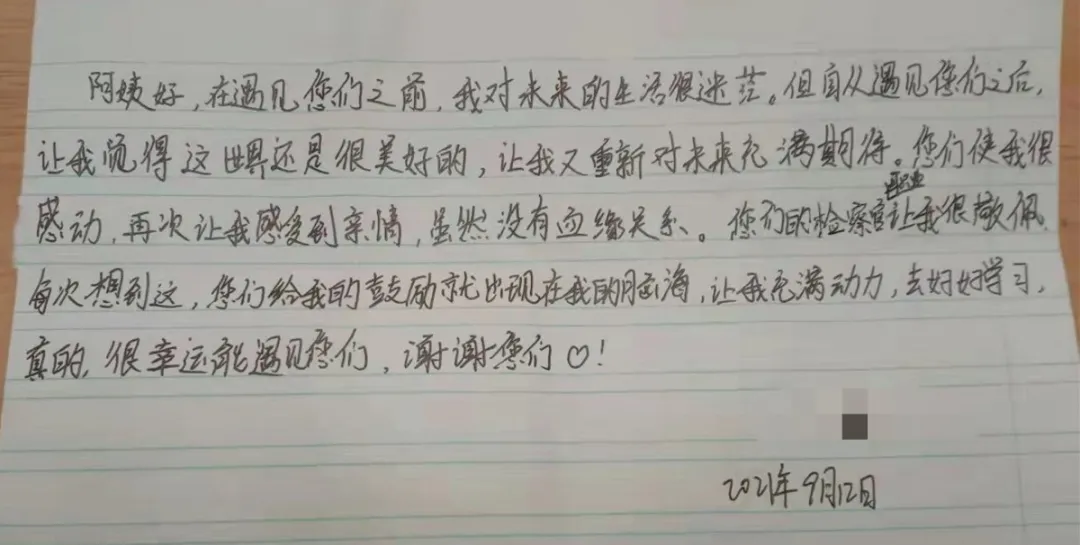 阿姨好，在遇见您们之前，我对未来的生活很迷茫。但自从遇见您们之后，
让我觉得这世界还是很美好的，让我又重新对未来充满期待。您们使我很
感动，再次让我感受到亲情，虽然没有血缘关系。您们的检察官职业让我很敬佩，
每次想到这，您们给我的鼓励就出现在我的脑海，让我充满动力，去好好学习，
真的，很幸运能遇见您们，谢谢您们♡！
2021年9月12日